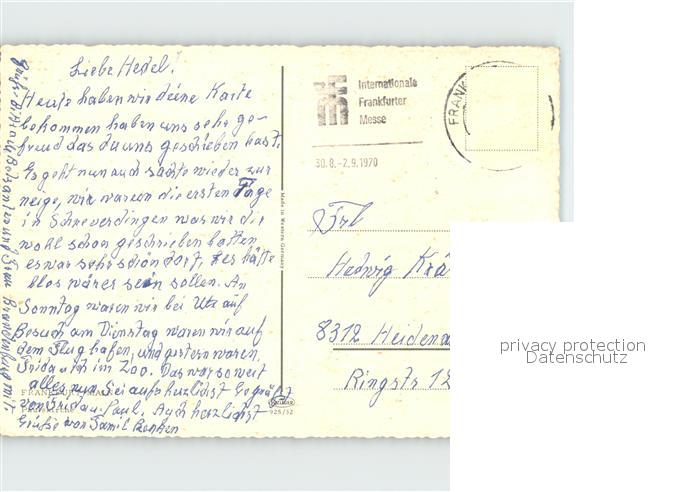 Liebe Hedel!
Heute haben wir deine Karte
bekommen haben uns sehr ge-
freud das du uns geschrieben hast.
Es geht nun auch sachte wieder zur
neige, wir waren die ersten Tage
in Schneverdingen was wir dir
wohl schon geschrieben hatten
es war sehr schön dort, es hätte
blos wärmer sein sollen. Am
Sonntag waren wir bei Ute auf
Besuch am Dienstag waren wir auf
dem Flughafen, und gestern waren
Frida und im Zoo. Das war so weit
alles nun Sei aufs herzlichst Gegrüßt
von Frida u. Paul. Auch herzlichst
Grüße von Famil
Grüße
und Frau Brandenburg mit
FRANKFURT
925/52
Made in Western Germany
Internationale
Frankfurter
Messe
30.8.-2.9.1970
FRANK
Frl
Hedwig Krä
8312 Heidena
Ringstr 12
privacy protection
Datenschutz